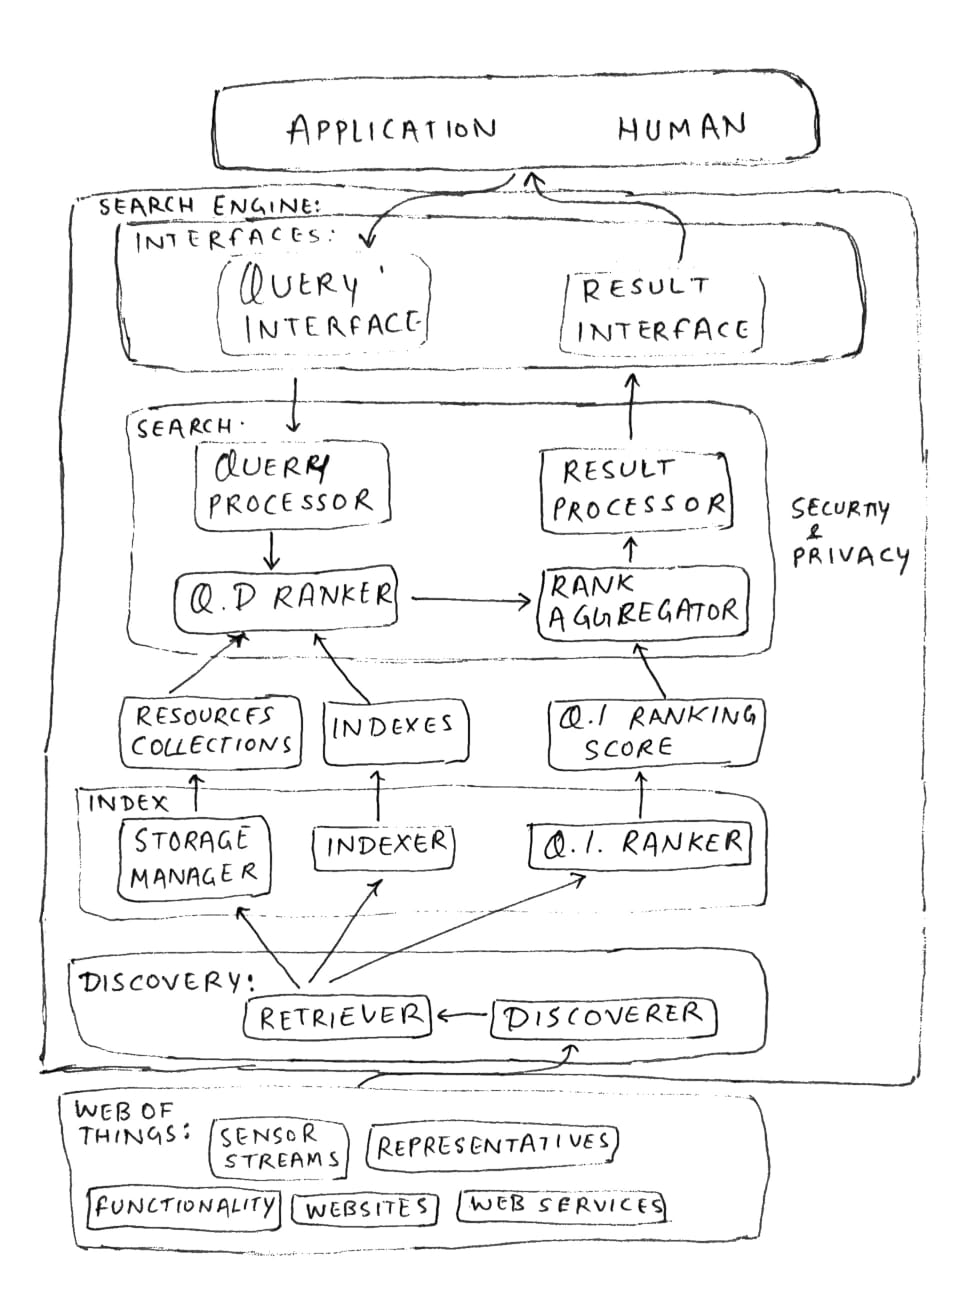 APPLICATION HUMAN
SEARCH ENGINE:
INTERFACES:
QUERY
INTERFACE
RESULT
INTERFACE
SEARCH.
QUERY
PROCESSOR
RESULT
PROCESSOR
SECURITY
&
PRIVACY
Q.D RANKER
RANK
AGGREGATOR
RESOURCES
COLLECTIONS
INDEXES
Q.I RANKING
SCORE
INDEX
STORAGE
MANAGER
INDEXER
Q.I. RANKER
DISCOVERY:
RETRIEVER
DISCOVERER
WEB OF
THINGS:
SENSOR
STREAMS
REPRESENTATIVES
FUNCTIONALITY
WEBSITES
WEB SERVICES